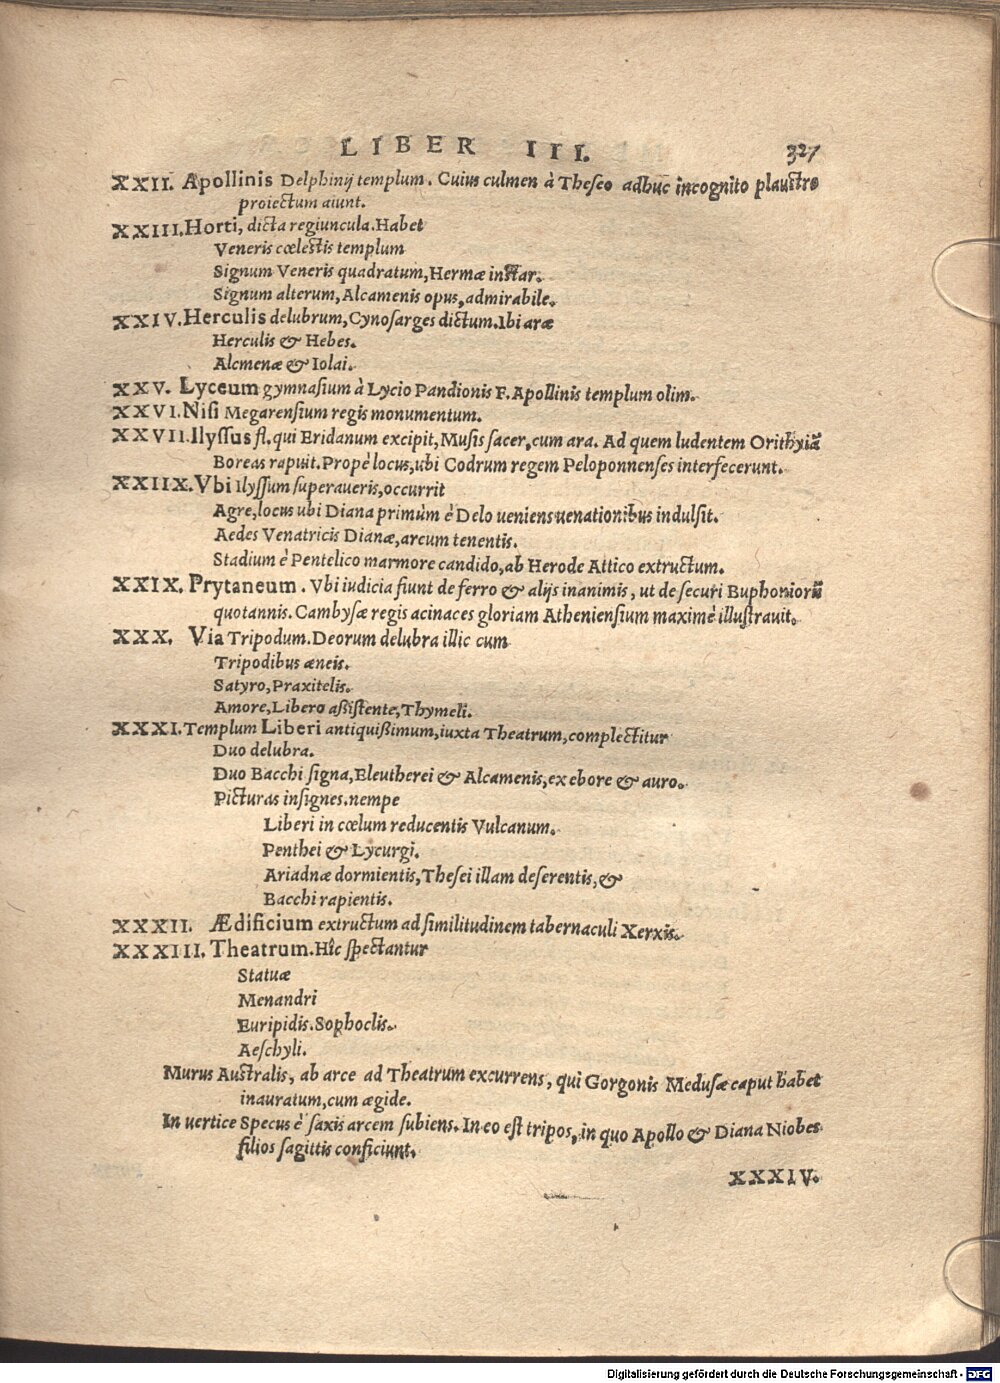 LIBER III. 327
XXII. Apollinis Delphinij templum. Cuius culmen à Theseo adhuc incognito plaustro
proiectum aiunt.
XXIII. Horti, dicta regiuncula. Habet
Veneris cœlestis templum
Signum Veneris quadratum, Hermæ instar.
Signum alterum, Alcamenis opus, admirabile.
XXIV. Herculis delubrum, Cynosarges dictum. Ibi aræ
Herculis & Hebes.
Alcmenæ & Iolai.
XXV. Lyceum gymnasium à Lycio Pandionis F. Apollinis templum olim.
XXVI. Nisi Megarensium regis monumentum.
XXVII. Ilyssus fl. qui Eridanum excipit, Musis sacer, cum ara. Ad quem ludentem Orithyiã
Boreas rapuit. Propè locus, ubi Codrum regem Peloponnenses interfecerunt.
XXIIX. Vbi Ilyssum superaueris, occurrit
Agre, locus ubi Diana primùm è Delo ueniens uenationibus indulsit.
Aedes Venatricis Dianæ, arcum tenentis.
Stadium è Pentelico marmore candido, ab Herode Attico extructum.
XXIX. Prytaneum. Vbi iudicia fiunt de ferro & alijs inanimis, ut de securi Buphoniorũ
quotannis. Cambysæ regis acinaces gloriam Atheniensium maximè illustrauit.
XXX. Via Tripodum. Deorum delubra illic cum
Tripodibus æneis.
Satyro, Praxitelis.
Amore, Libero assistente, Thymeli.
XXXI. Templum Liberi antiquissimum, iuxta Theatrum, complectitur
Duo delubra.
Duo Bacchi signa, Eleutherei & Alcamenis, ex ebore & auro.
Picturas insignes. nempe
Liberi in cœlum reducentis Vulcanum.
Penthei & Lycurgi.
Ariadnæ dormientis, Thesei illam deserentis, &
Bacchi rapientis.
XXXII. Ædificium extructum ad similitudinem tabernaculi Xerxis.
XXXIII. Theatrum. Hîc spectantur
Statuæ
Menandri
Euripidis. Sophoclis.
Aeschyli.
Murus Australis, ab arce ad Theatrum excurrens, qui Gorgonis Medusæ caput habet
inauratum, cum ægide.
In uertice Specus è saxis arcem subiens. In eo est tripos, in quo Apollo & Diana Niobes
filios sagittis conficiunt.
XXXIV.
Digitalisierung gefördert durch die Deutsche Forschungsgemeinschaft - DFG